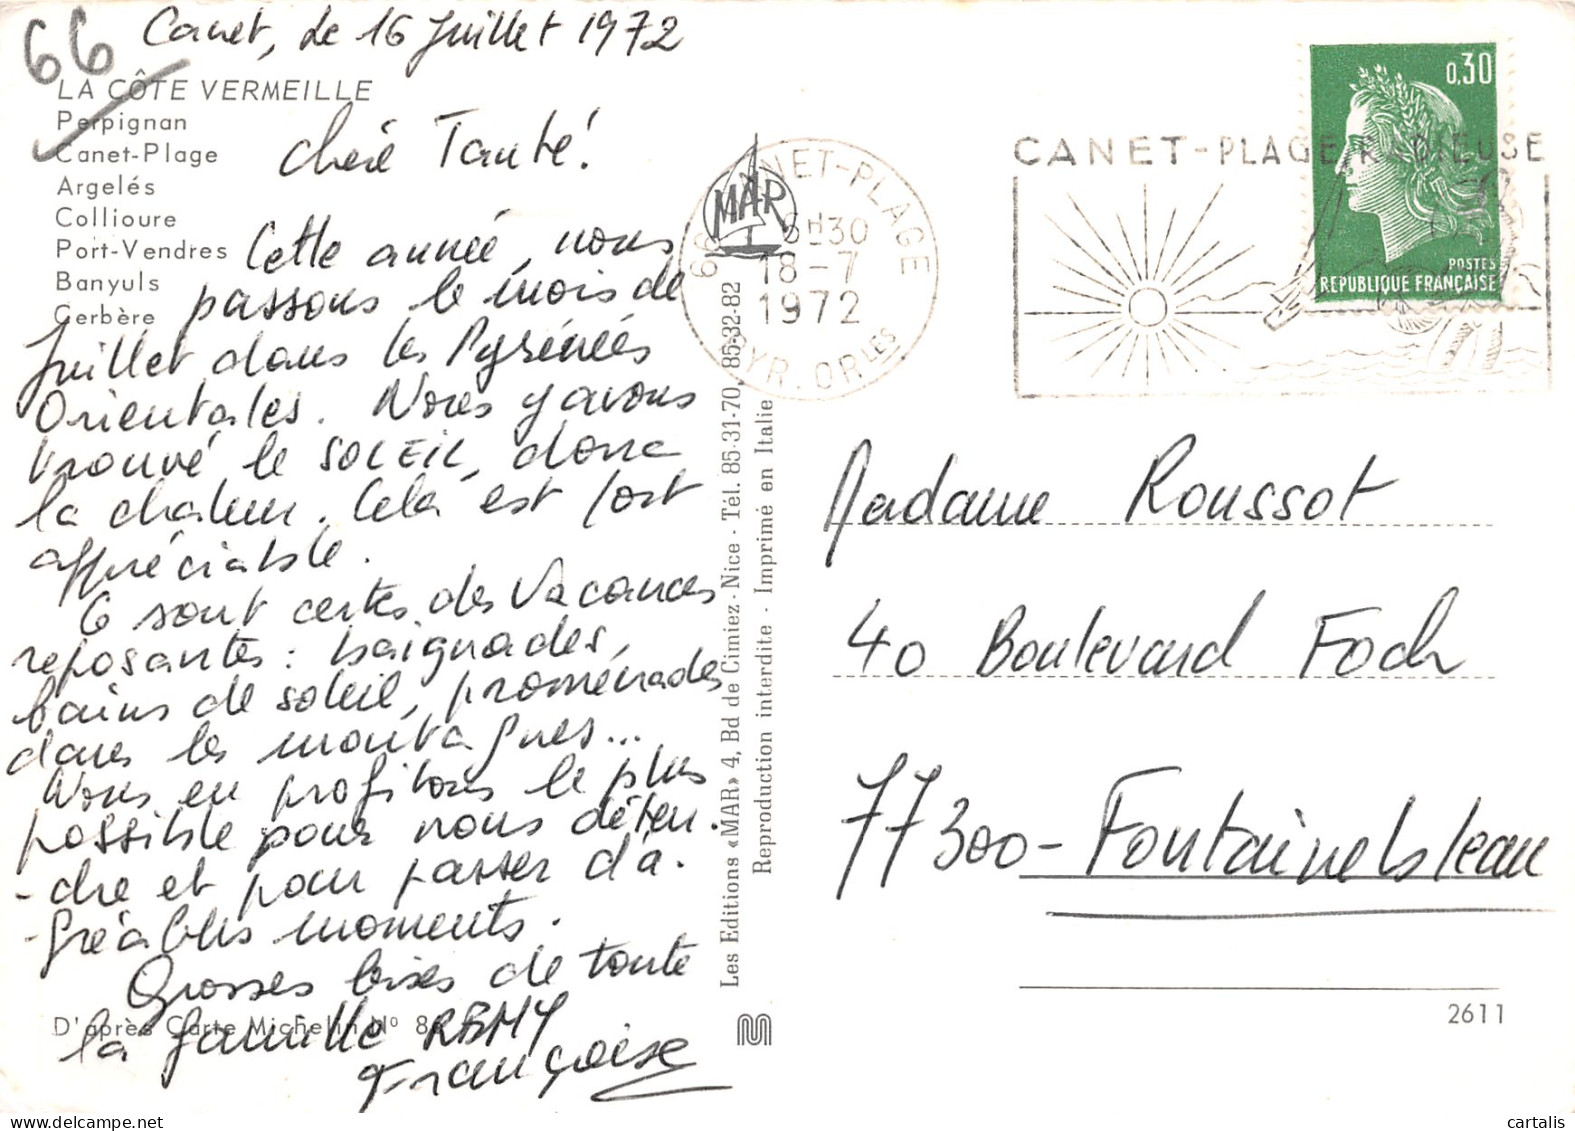 66
Canet, le 16 Juillet 1972
LA CÔTE VERMEILLE
Perpignan
Canet-Plage
Argelés
Collioure
Port-Vendres
Banyuls
Cerbère
chère Tante!
Cette année, nous
passons le mois de
Juillet dans les Pyrénées
Orientales. Nous y avons
trouvé le SOLEIL, donc
la chaleur. Cela est fort
appréciable.
Ce sont certes des vacances
reposantes : baignades,
bains de soleil, promenades
dans les montagnes...
Nous en profitons le plus
possible pour nous déten-
-dre et pour passer d'a-
-gréables moments.
Grosses bises de toute
la famille REMY
Françoise
D'après Carte Michelin Nº 86
MAR
Les Editions «MAR» 4, Bd de Cimiez - Nice - Tél. 85-31-70, 85-32-82
Reproduction interdite - Imprimé en Italie
66 CANET-PLAGE
16H30
18-7
1972
PYR. ORLES
CANET-PLAGE RADIEUSE
0,30
POSTES
REPUBLIQUE FRANÇAISE
Madame Roussot
40 Boulevard Foch
77300 - Fontainebleau
2611
cartalis